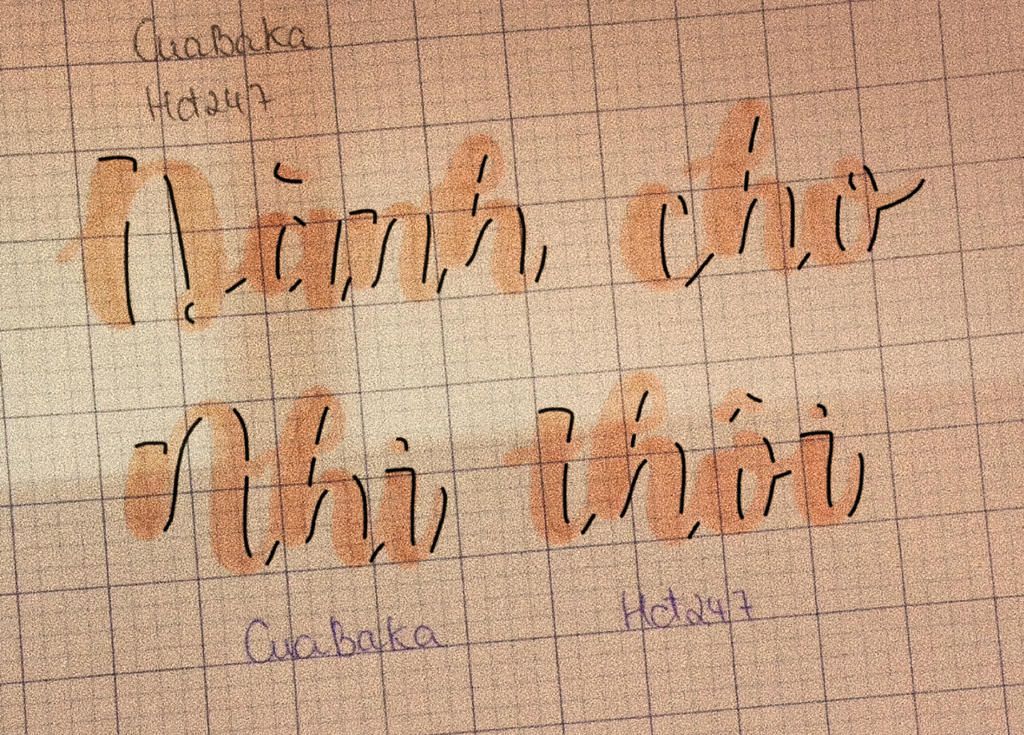 CuaBaka
Hct247
Dành cho
Nhi thôi
CuaBaka Hct247